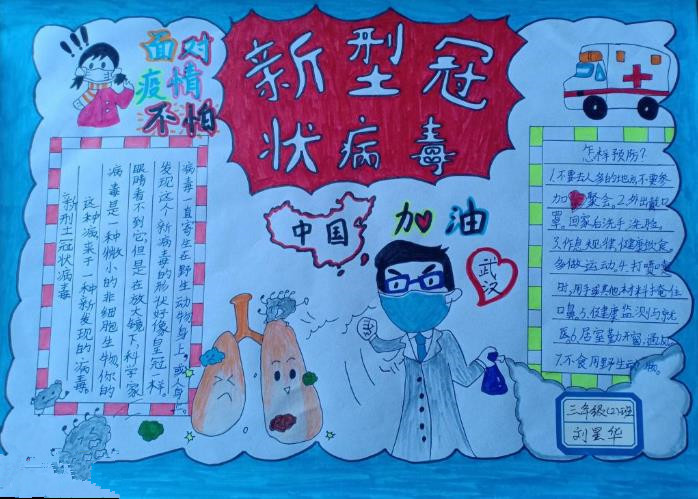 面对
疫情
不怕
新型冠
状病毒
中国
加油
武汉
新型冠状病毒
这种病来于一种新发现的病毒。
病毒是一种微小的非细胞生物,你的
眼睛看不到它,但是在放大镜下,科学家
发现这个新病毒的形状好像皇冠一样。
病毒一直寄生在野生动物身上,或人身
怎样预防?
1.不要去人多的地点不要参
加聚会.2.外出戴口
罩。回家后洗手洗脸。
3.作息规律,健康饮食。
多做运动.4.打喷嚏
时,用手或其他材料掩住
口鼻.5.健康监测与就
医.6.居室勤开窗,通风
7.不食用野生动物。
三年级(2)班
刘星华